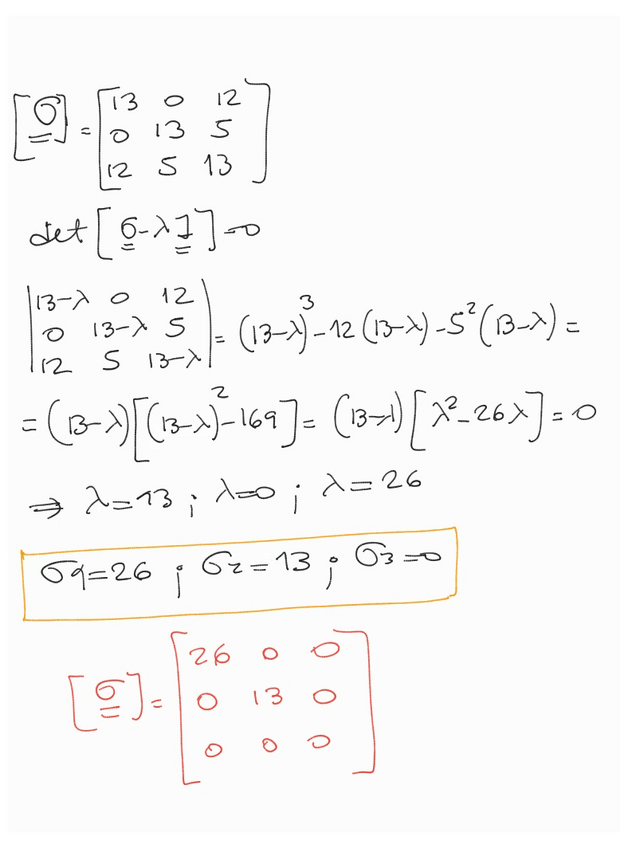 [σ] = [13 0 12
0 13 5
12 5 13]
det [σ-λ1] = 0
|13-λ 0 12
0 13-λ 5
12 5 13-λ| = (13-λ)³ - 12 (13-λ) - 5² (13-λ) =
= (13-λ) [(13-λ)² - 169] = (13-λ) [λ² - 26λ] = 0
⇒ λ = 13 ; λ = 0 ; λ = 26
σ1 = 26 ; σ2 = 13 ; σ3 = 0
[σ] = [26 0 0
0 13 0
0 0 0]